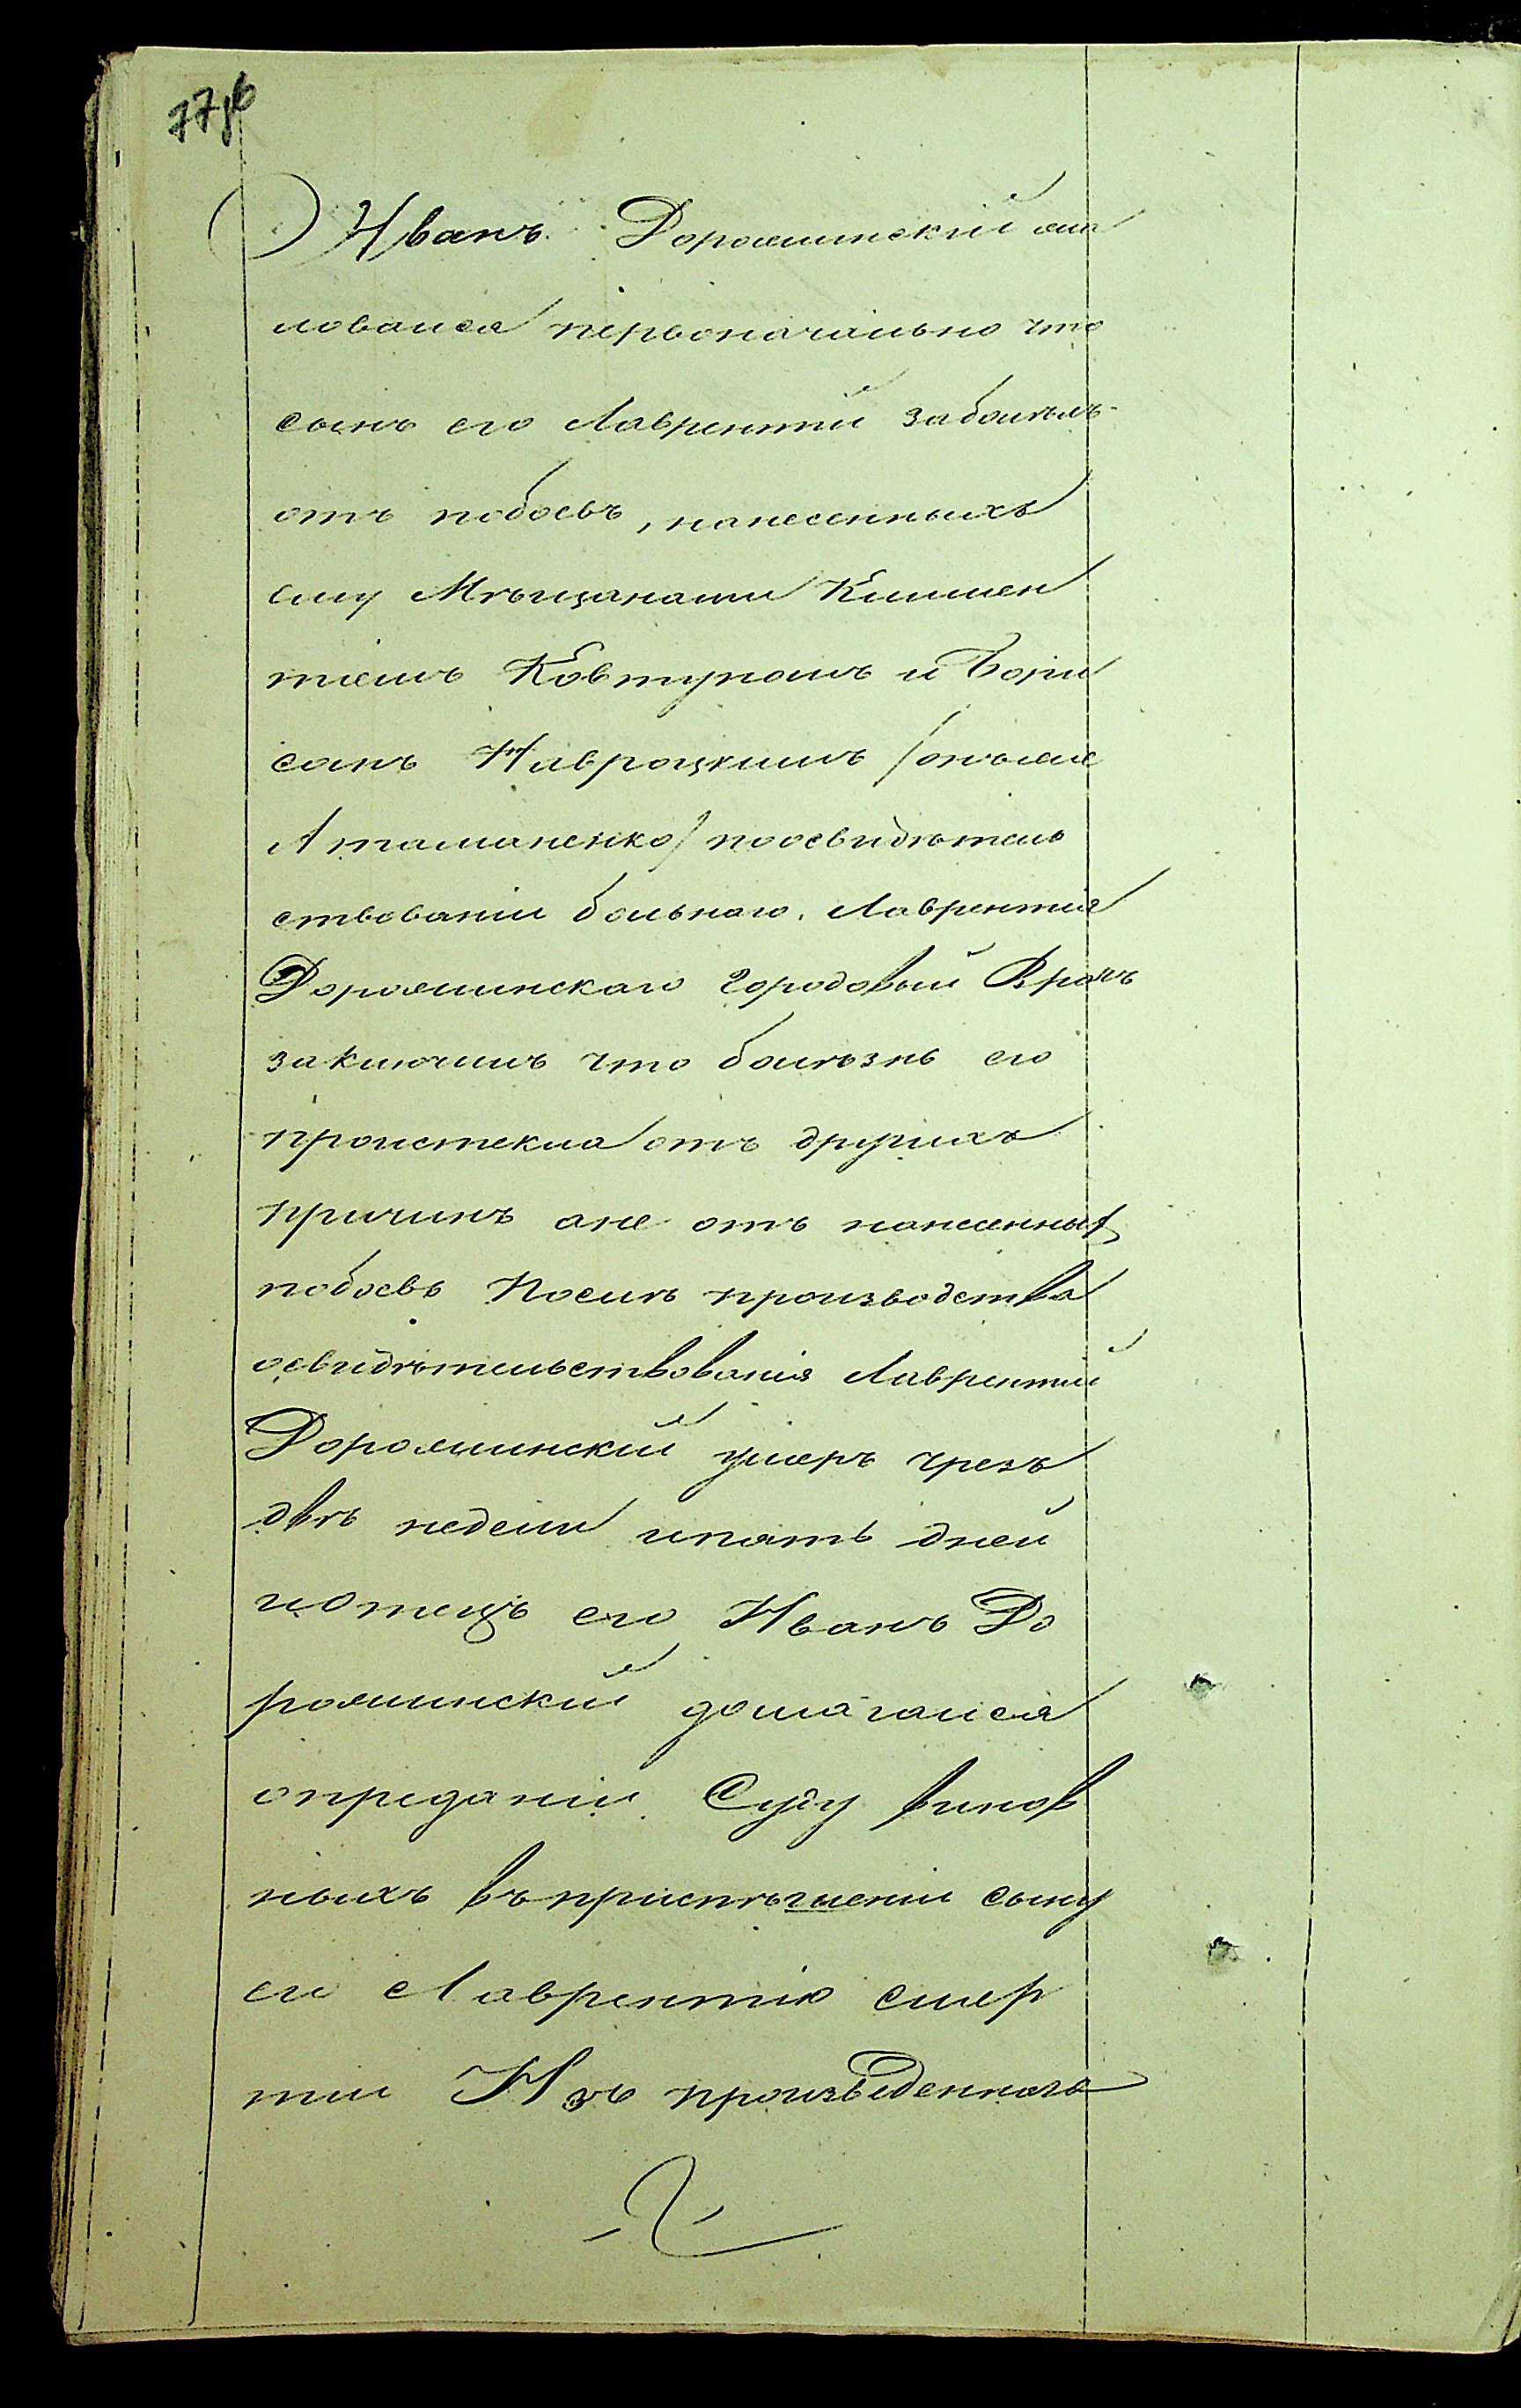 77об
Иванъ Дорожинскій жа
ловался первоначально что
сынъ его Лаврентій заболѣлъ
отъ побоевъ, нанесенныхъ
ему Мѣщанами Климен
тіемъ Ковтуномъ и Бори
сомъ Навроцкимъ /онъ же
Атаманенко/ по освидѣтель
ствованіи больнаго. Лаврентія
Дорожинскаго Городовый Врачъ
заключилъ что болѣзнь его
проистекла отъ другихъ
причинъ а не отъ нанесенных
побоевъ Послѣ производства
освидѣтельствованія Лаврентій
Дорожинскій умеръ чрезъ
двѣ недели и пять дней
и отецъ его Иванъ До
рожинскій домагался
о преданіи Суду винов
ныхъ въ приспѣшеніи сыну
его Лаврентію смер
ти Изъ произведеннаго